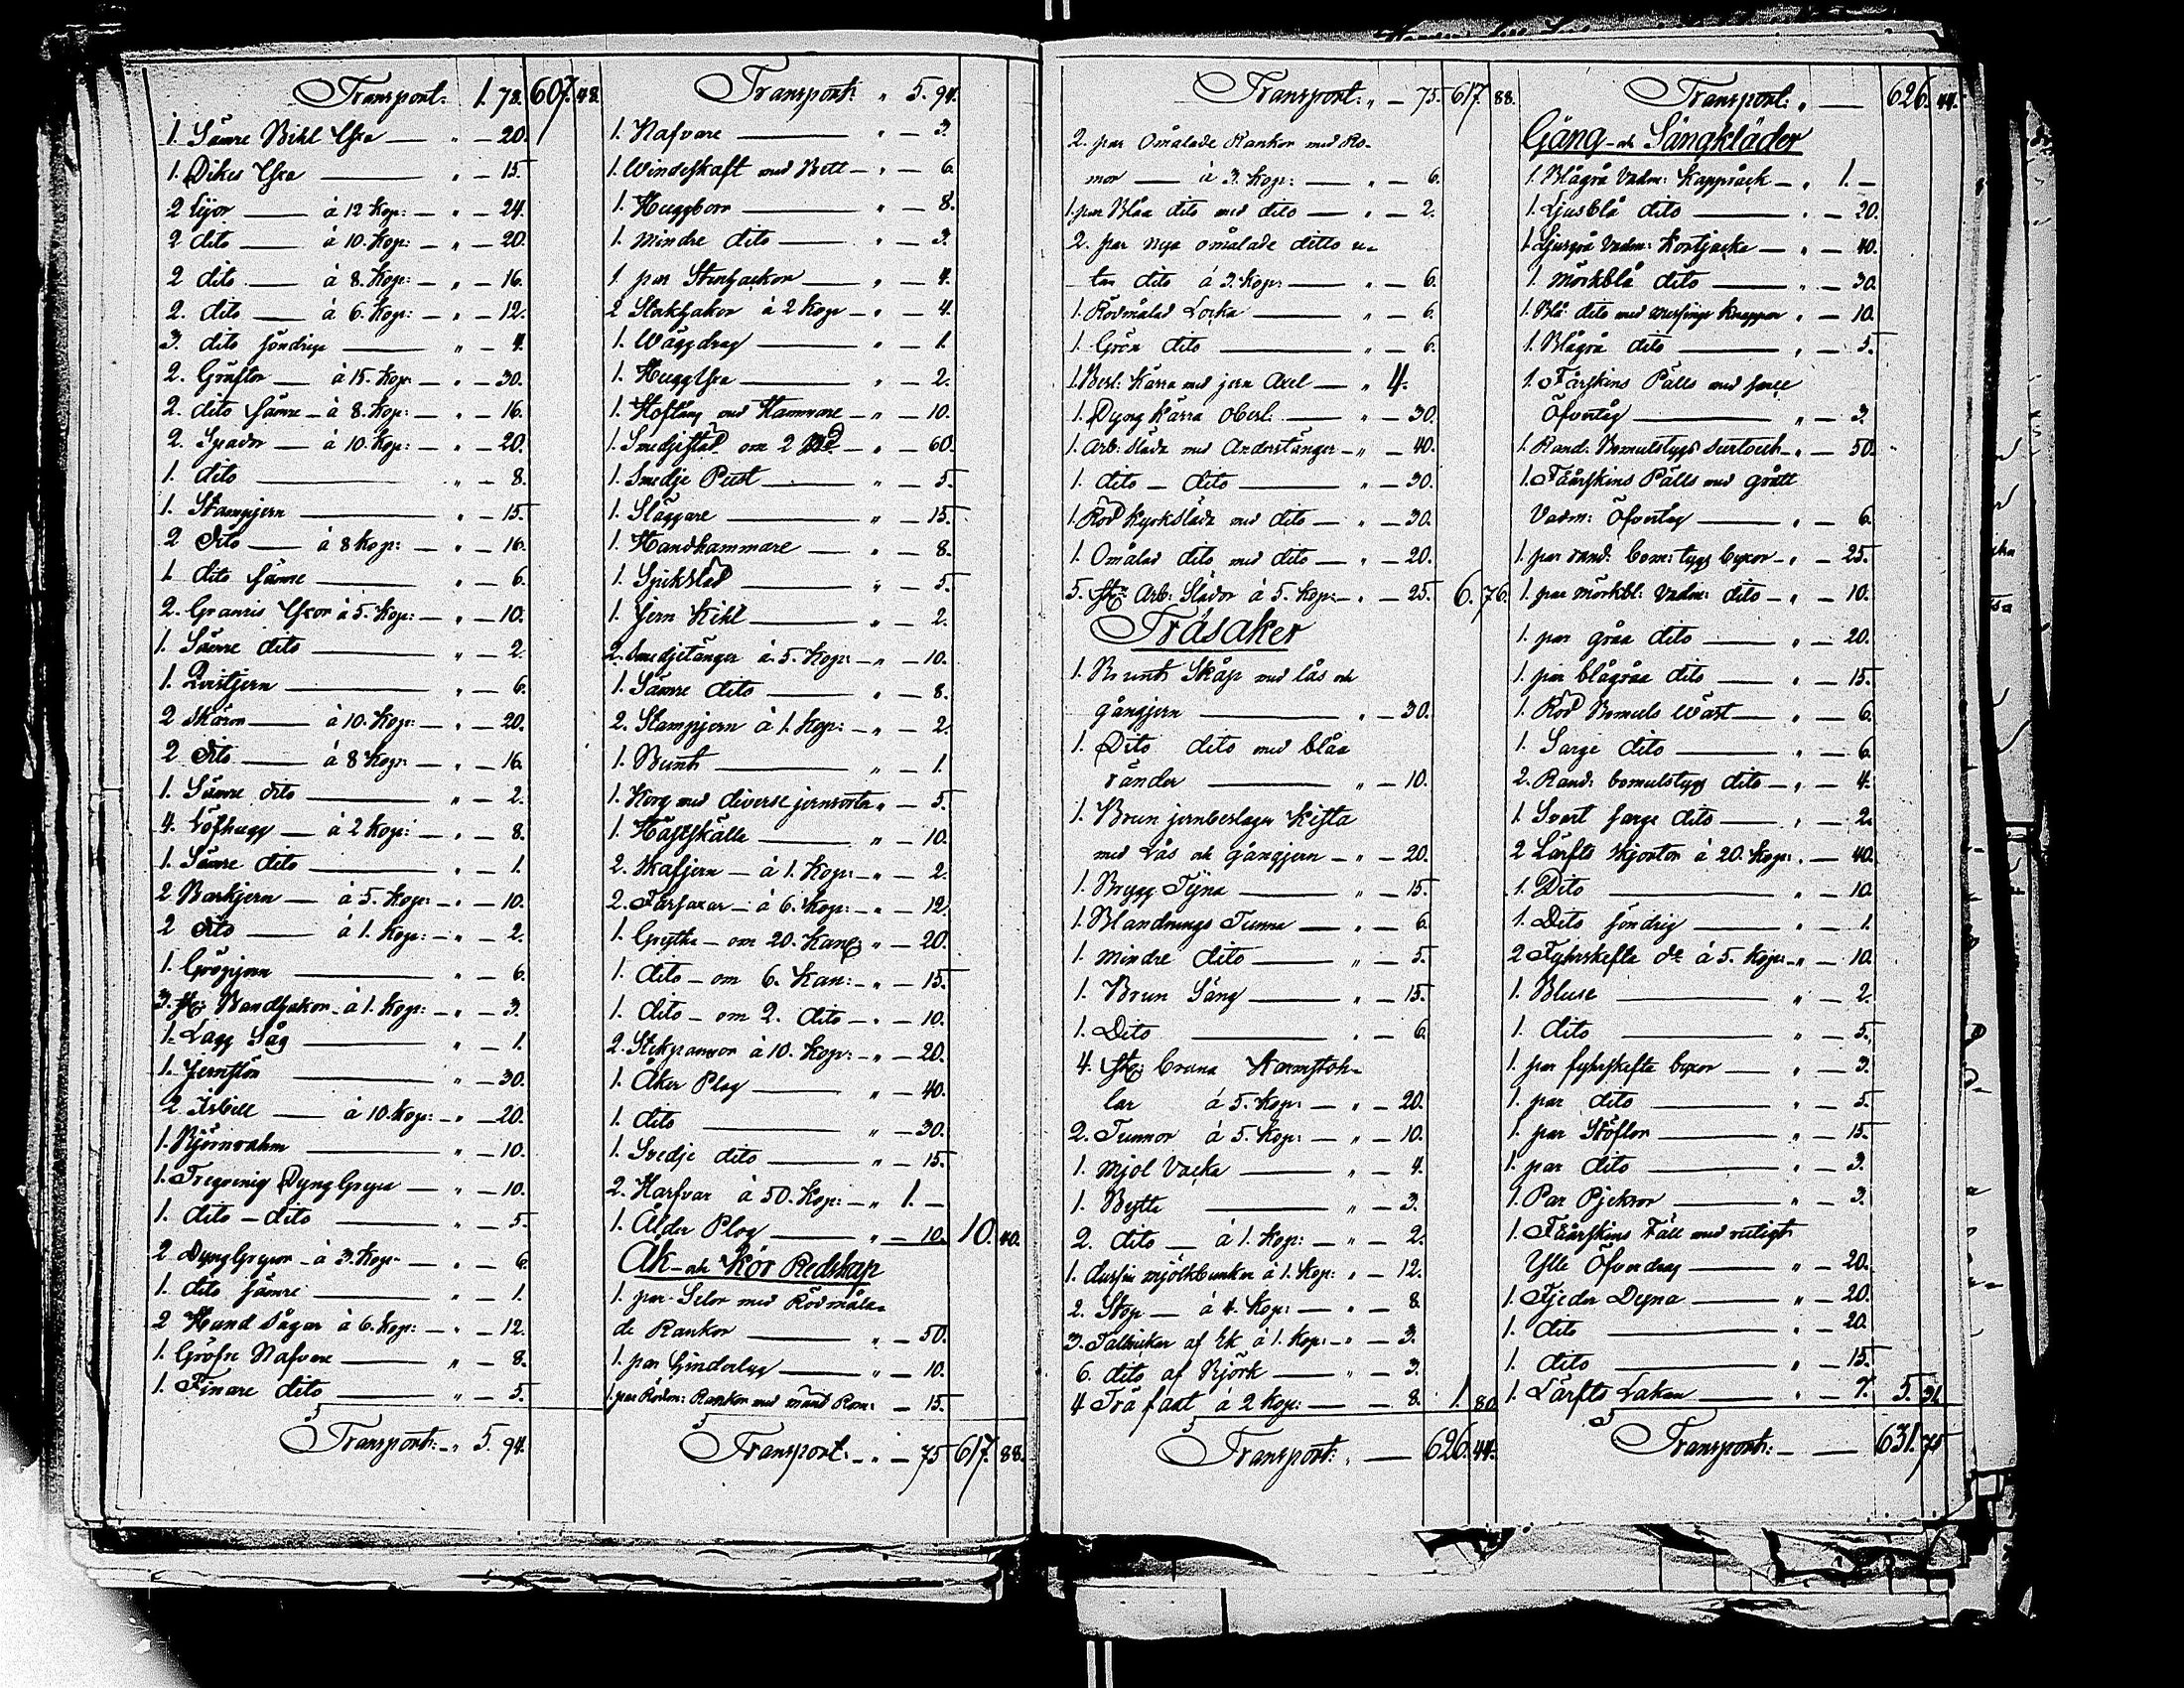 Transport: 1. 78. 607. 48.
1. Sämre Bihl Yxa — " — 20.
1. Dikes Yxa — " — 15.
2 Lijor — à 12 Kop: — " — 24.
2 dito — à 10. Kop: — " — 20.
2 dito — à 8. Kop: — " — 16.
2. dito — à 6. Kop: — " — 12.
3. dito söndriga — " — 4.
2. Gräftor — à 15. Kop: — " — 30.
2. dito sämre — à 8. Kop: — " — 16.
2. Spador — à 10. Kop: — " — 20.
1. dito — " — 8.
1. Stampjern — " — 15.
2 Dito — à 8 Kop: — " — 16.
1. dito sämre — " — 6.
2. Granris Yxor à 5. Kop: — " — 10.
1. Sämre dito — " — 2.
1. Qvistjern — " — 6.
2 Skäror — à 10. Kop: — " — 20.
2 Dito — à 8 Kop: — " — 16.
1. Sämre dito — " — 2.
4. Löfhugg — à 2 Kop: — " — 8.
1. Sämre dito — " — 1.
2 Barkjern — à 5. Kop: — " — 10.
2 Dito — à 1. Kop: — " — 2.
1. Gröpjern — " — 6.
3. st: Bandhakar à 1. Kop: — " — 3.
1. Lagg Såg — " — 1.
1. Jernstör — " — 30.
2. Isbill — à 10. Kop: — " — 20.
1. Björnrahm — " — 10.
1. Tregrenig Dyng Grepa — " — 10.
1. dito – dito — " — 5.
2. Dyng Grepor – à 3. Kop: — " — 6.
1. dito sämre — " — 1.
2 Hand Sågar à 6. Kop: — " — 12.
1. Gröfre Nafvare — " — 8.
1. Finare dito — " — 5.
Transport: — " 5. 94.
Transport: " 5. 94.
1. Nafvare — " — 3.
1. Windeskaft med Bett — " — 6.
1. Huggborr — " — 8.
1. mindre dito — " — 3.
1 par Stenhackor — " — 4.
2 Stockhakar à 2 Kop — " — 4.
1. Wäggdrag — " — 1.
1. Hugg Yxa — " — 2.
1. Hoftång med Hammare — " — 10.
1. Smedjestäd om 2 — " — 60.
1. Smedje Pust — " — 5.
1. Släggare — " — 15.
1. Handhammare — " — 8.
1. Spikstäd — " — 5.
1. Jern Kihl — " — 2.
2. Smedjetänger à 5. Kop: — " — 10.
1. Sämre dito — " — 8.
2. Stampjern à 1. Kop: — " — 2.
1. Bunt — " — 1.
1. Korg med diverse jernsorter " — 5.
1. Hästskälla — " — 10.
2. Skafjern — à 1. Kop: — " — 2.
2. Fårsaxar — à 6. Kop: — " — 12.
1. Gryta — om 20. Kan: " — 20.
1. dito — om 6. Kan: — " — 15.
1. dito — om 2. dito — " — 10.
2. Stekpannor à 10. Kop: — " — 20.
1. Åker Plog — " — 40.
1. dito — " — 30.
1. Svedje dito — " — 15.
2. Harfvar à 50. Kop: — " 1. —
1. Ålder Plog — " — 10. 10. 40.
Åk- och Kör Redskap
1. par Selor med Rödmåla-
de Rankor — " — 50.
1. par Hinderlag — " — 10.
1. par Rödm: Rankor med Rem: — 15.
Transport: — " — 75 617. 88.
Transport: " — 75. 617. 88.
2. par Omålade Rankor med Re-
mor — à 3. Kop: — " — 6.
1. par Blåa dito med dito — " — 2.
2. par nya omålade ditto u-
tan dito à 3. Kop: — " — 6.
1. Rödmålad Locka — " — 6.
1. Grön dito — " — 6.
1. Besl: Kärra med jern Axel — " 4.
1. Dyng Kärra obesl: — " — 30.
1. Arb: Släda med Anderstänger — " — 40.
1. dito – dito — " — 30.
1. Röd Kyrksläda med dito — " — 30.
1. Omålad dito med dito — " — 20.
5. st: Arb: Slädor à 5. Kop: — " — 25. 6. 76.
Träsaker
1. Brunt Skåp med lås och
gångjern — " — 30.
1. Dito dito med blåa
ränder — " — 10.
1. Brun jernbeslagen Kista
med Lås och gångjern — " — 20.
1. Brygg Tyna — " — 15.
1. Blandnings Tunna — " — 6.
1. mindre dito — " — 5.
1. Brun Säng — " — 15.
1. Dito — " — 6.
4. st: bruna Karmstoh-
lar à 5. Kop: — " — 20.
2. Tunnor à 5. Kop: — " — 10.
1. Mjöl Vacka — " — 4.
1. Bytta — " — 3.
2. dito — à 1. Kop: — " — 2.
1. dussin mjölkbunkar à 1. Kop: " — 12.
2. Stop — à 4. Kop: — " — 8.
3. Tallrickar af Ek à 1. Kop: — " — 3.
6. dito af Björk — " — 3.
4 Trä fat à 2 Kop: — — 8. 1. 80.
Transport: " — 626. 44.
Transport: " — 626. 44.
Gång- och Sängkläder
1. Blågrå Vadm: Kappråck — " 1. —
1. Ljusblå dito — " — 20.
1. Ljusgrå Vadm: Kortjacka — " — 40.
1. mörkblå dito — " — 30.
1. Blå dito med messings Knappar " — 10.
1. Blågrå dito — " — 5.
1. Fårskins Pälls med
Öfvertåg — " — 3.
1. Rand: Bomulstygs Surtout — " — 50.
1. Fåårskins Pälls med grått
Vadm: Öfvertåg — " — 6.
1. par rand: bom: tygs byxor — " — 25.
1. par mörkbl: Vadm: dito — " — 10.
1. par gråa dito — " — 20.
1. par blågråa dito — " — 15.
1. Röd Bomuls Wäst — " — 6.
1. Sarge dito — " — 6.
2. Rand: bomulstygs dito — " — 4.
1. Svart sarge dito — " — 2.
2 Lärfts skjortor à 20. Kop: " — 40.
1. Dito — 10.
1. Dito söndrig — " — 1.
2 Fyhrskefta d:o à 5. Kop: — " — 10.
1. Bluse — " — 2.
1. dito — " — 5.
1. par fyhrskefta byxor — " — 3.
1. par dito — " — 5.
1. par Stöflor — " — 15.
1. par dito — " — 3.
1. Par Pjexor — " — 3.
1. Fåårskins Fäll med rutigt
Ylle Öfverdrag — " — 20.
1. Fjeder Dyna — " — 20.
1. dito — " — 20.
1. dito — " — 15.
1. Lärfts Lakan — " — 7. 5. 31.
Transport: — — 631. 75